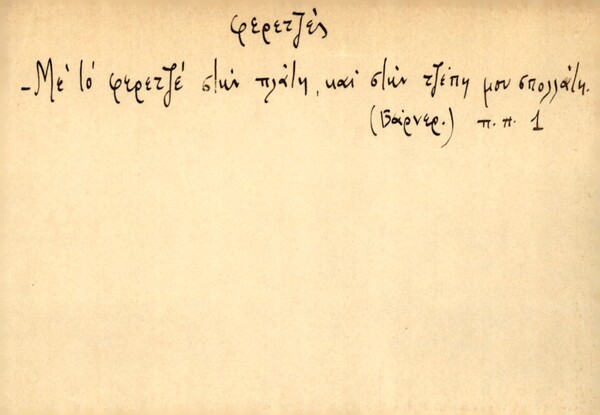 φερετζές
- Μέ τό φερετζέ στήν πλάτη, καί στήν τζέπη μου σπολλάτη.
(Βάρνερ.) π.π. 1